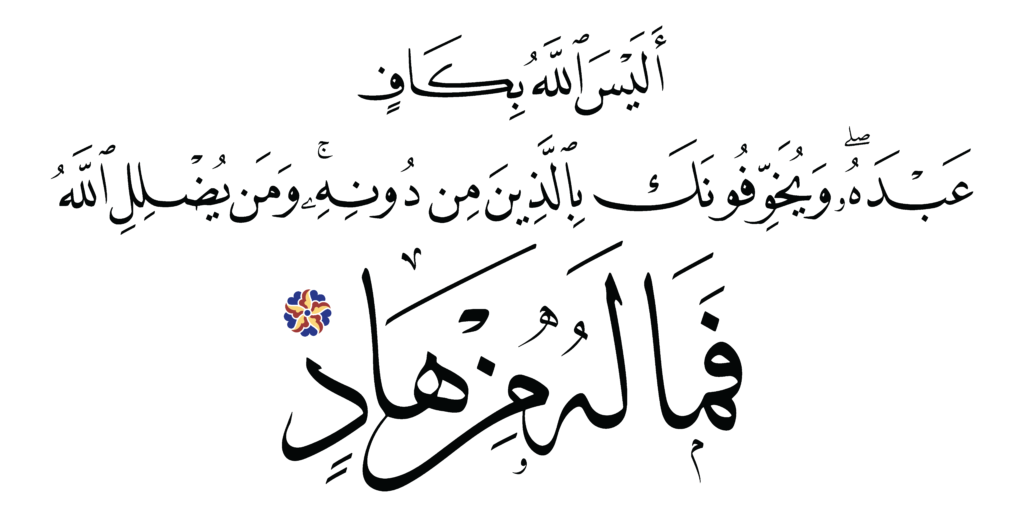 أَلَيْسَ ٱللَّهُ بِكَافٍ
عَبْدَهُۥۖ وَيُخَوِّفُونَكَ بِٱلَّذِينَ مِن دُونِهِۦۚ وَمَن يُضْلِلِ ٱللَّهُ
فَمَا لَهُۥ مِنْ هَادٍ